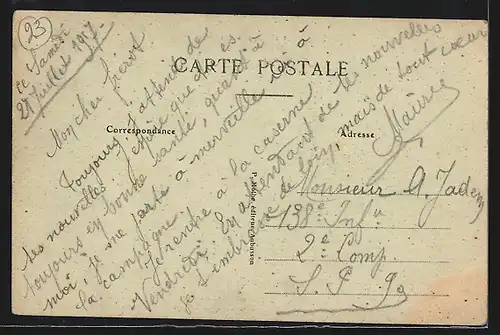 23
ce Samedi
28 Juillet 1917
CARTE POSTALE
Correspondance
Adresse
Mon cher frérot
Toujours j'attends de
tes nouvelles. J'espère que tu es
toujours en bonne santé, quant à
moi, je me porte à merveille à
la campagne.
Je rentre à la caserne
Vendredi. En attendant de tes nouvelles
je t'embrasse de loin, mais de tout cœur
Maurice
Monsieur A. Jadem
138e Infie
2e Comp.
S. P. 90